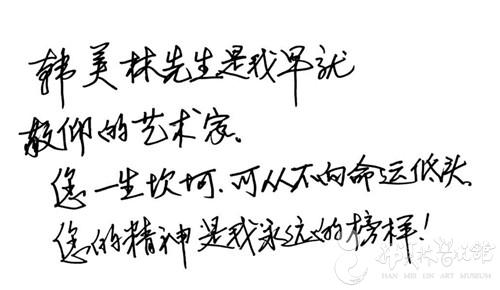 韩美林先生是我早就
敬仰的艺术家。
您一生坎坷,可从不向命运低头。
您的精神是我永远的榜样!
韩美林艺术馆
HAN MEI LIN ART MUSEUM